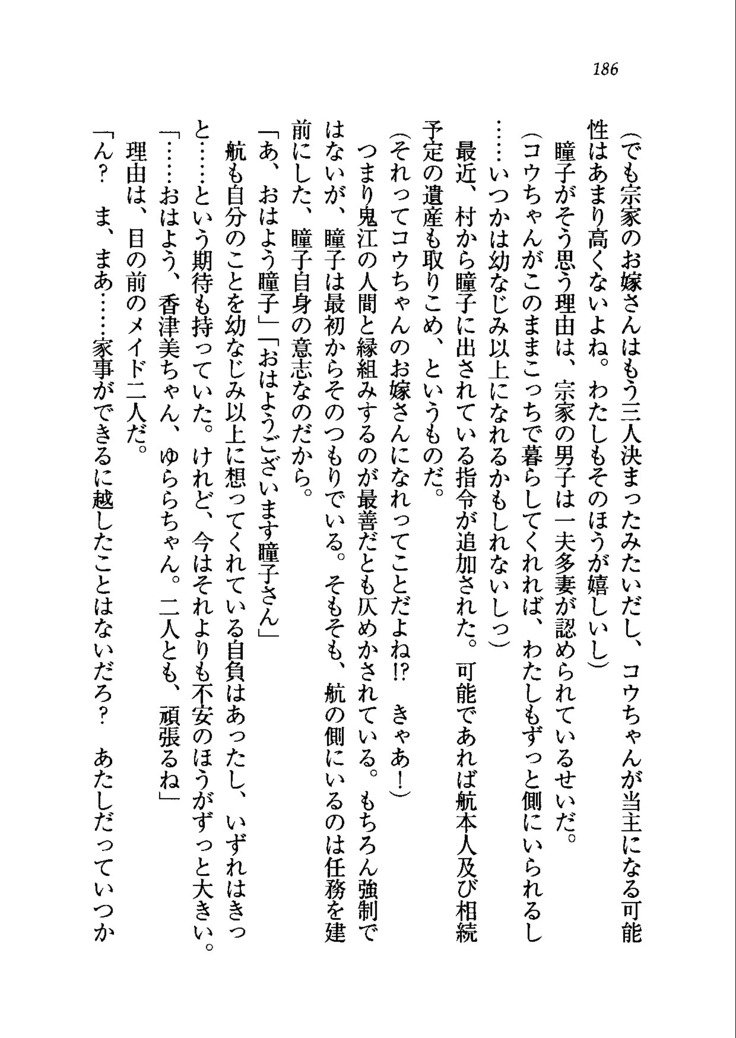 186
（でも宗家のお嫁さんはもう三人決まったみたいだし、コウちゃんが当主になる可能
性はあまり高くないよね。わたしもそのほうが嬉しいし）
　瞳子がそう思う理由は、宗家の男子は一夫多妻が認められているせいだ。
（コウちゃんがこのままこっちで暮らしてくれれば、わたしもずっと側にいられるし
……いつかは幼なじみ以上になれるかもしれないしっ）
　最近、村から瞳子に出されている指令が追加された。可能であれば航本人及び相続
予定の遺産も取りこめ、というものだ。
（それってコウちゃんのお嫁さんになれってことだよね!?　きゃあ！）
　つまり鬼江の人間と縁組みするのが最善だとも仄めかされている。もちろん強制で
はないが、瞳子は最初からそのつもりでいる。そもそも、航の側にいるのは任務を建
前にした、瞳子自身の意志なのだから。
「あ、おはよう瞳子」「おはようございます瞳子さん」
　航も自分のことを幼なじみ以上に想ってくれている自負はあったし、いずれはきっ
と……という期待も持っていた。けれど、今はそれよりも不安のほうがずっと大きい。
「……おはよう、香津美ちゃん、ゆららちゃん。二人とも、頑張るね」
　理由は、目の前のメイド二人だ。
「ん？　ま、まあ……家事ができるに越したことはないだろ？　あたしだっていつか